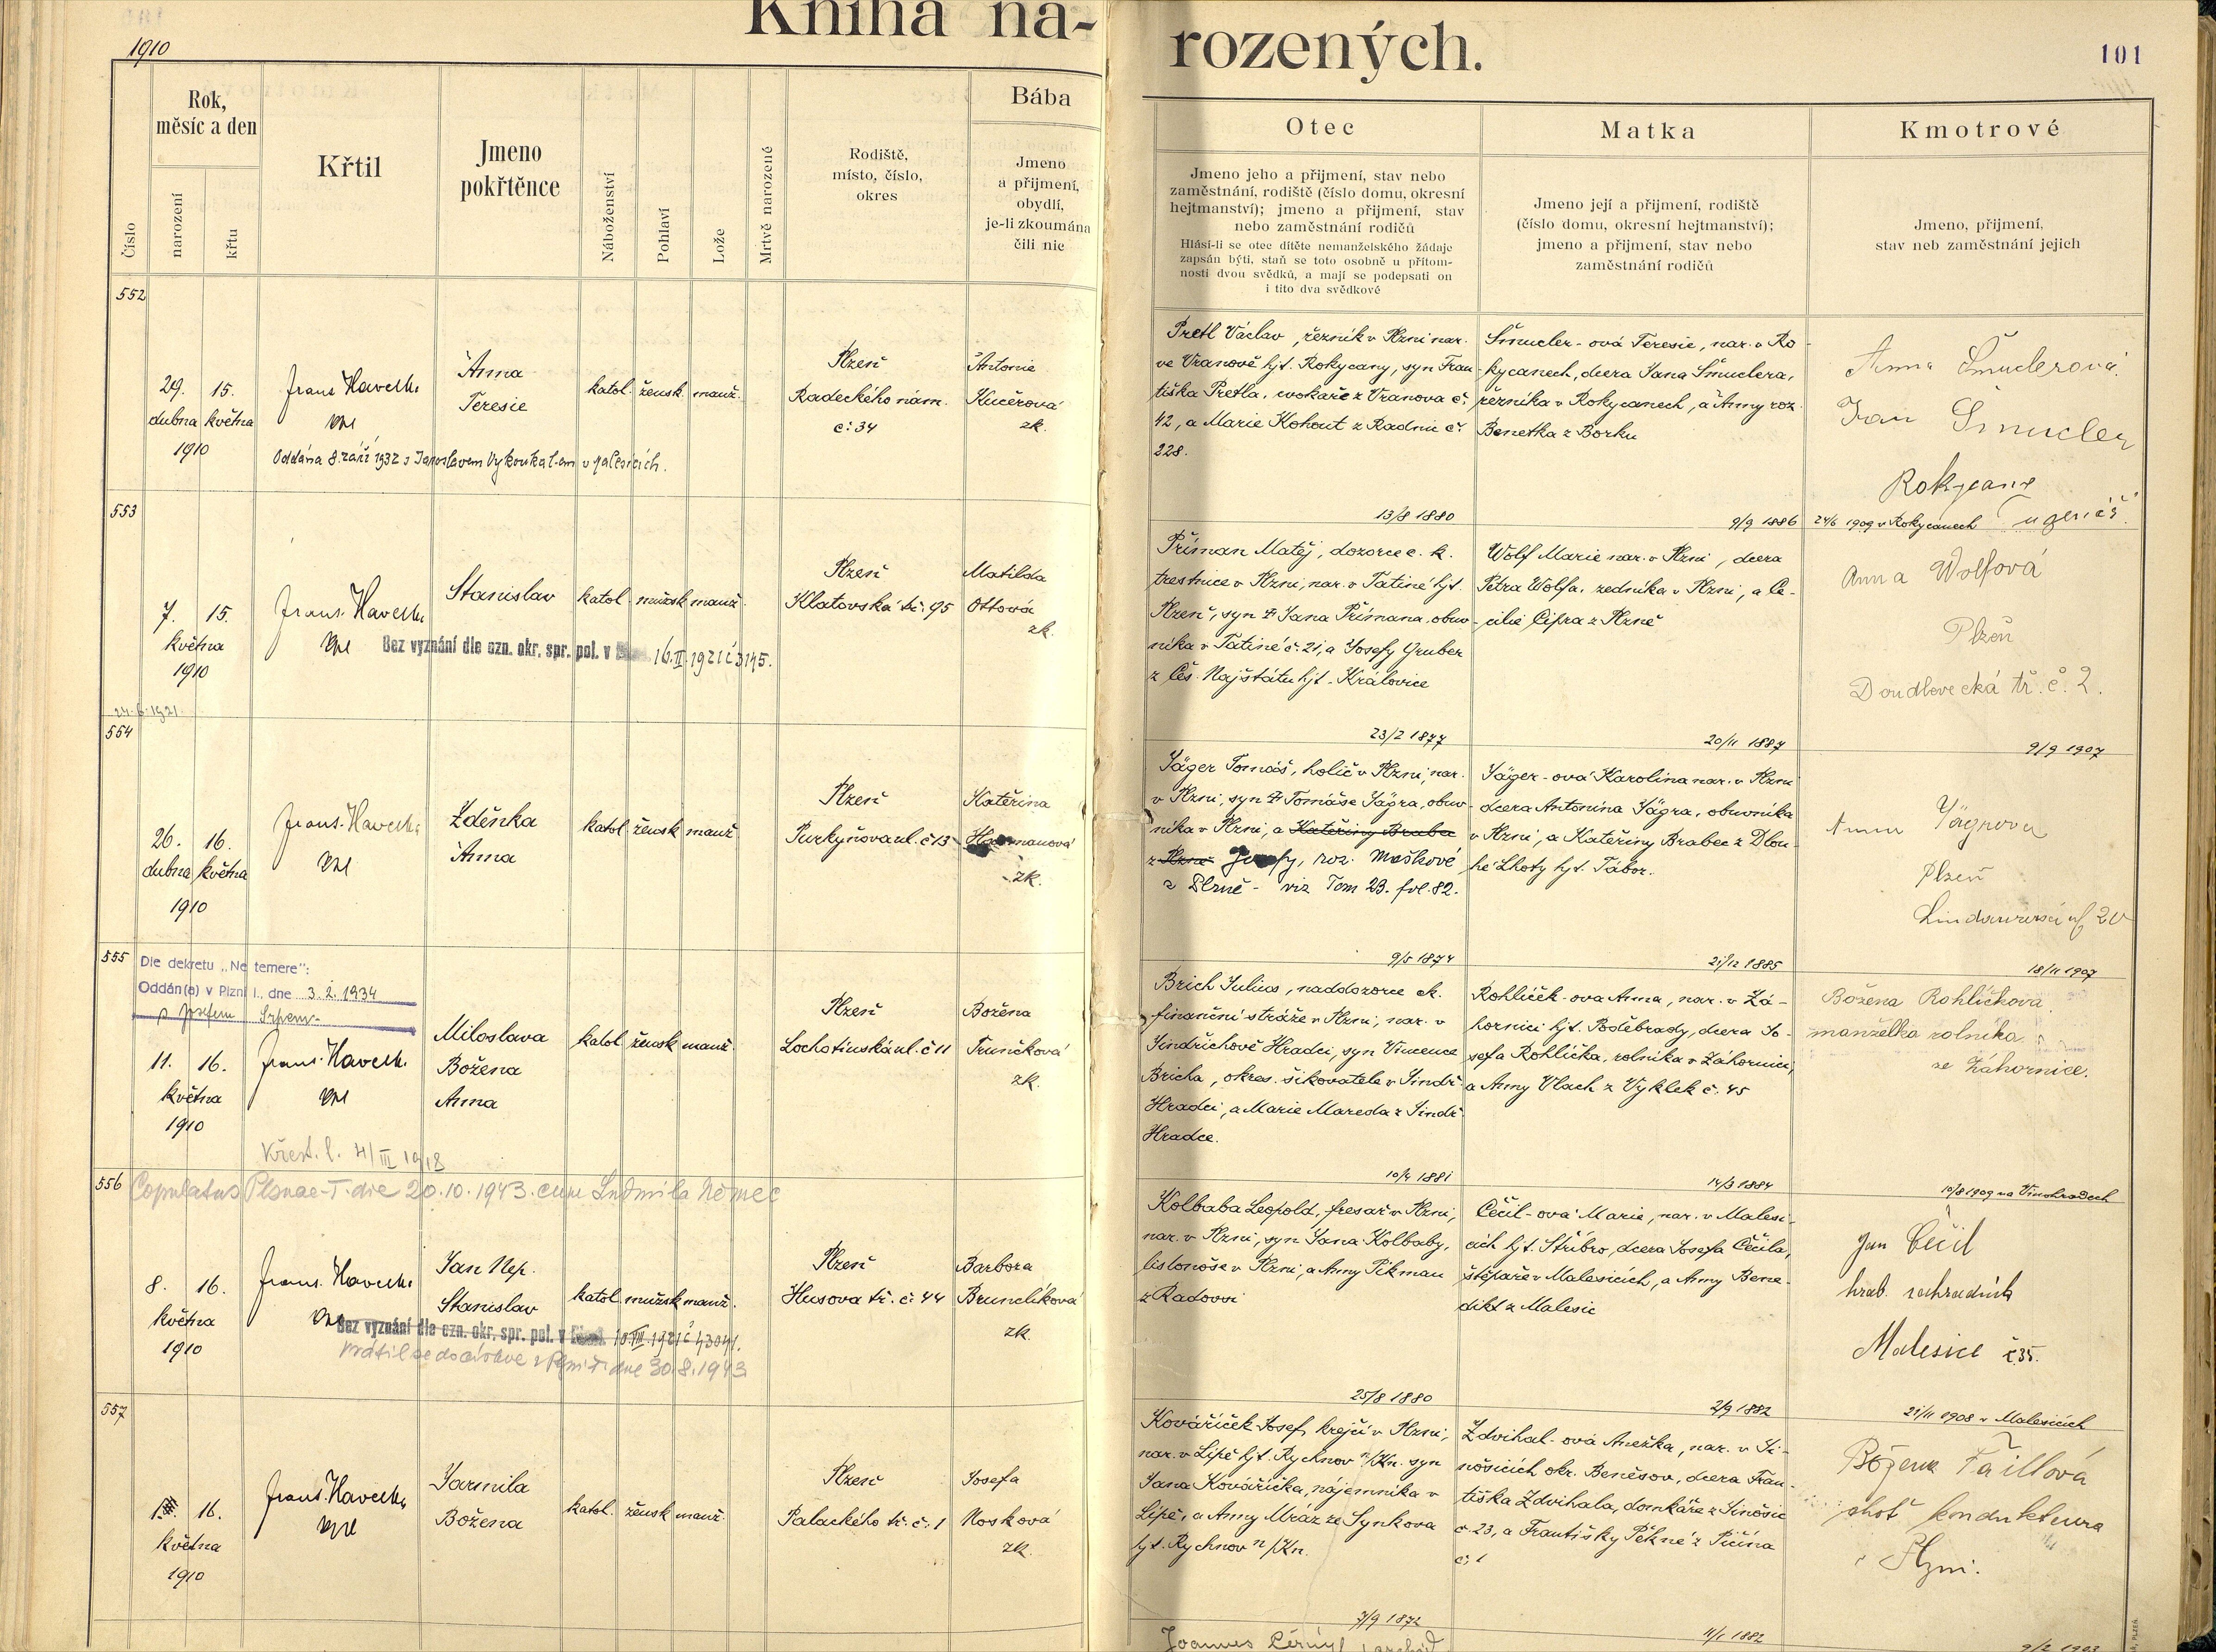 Kniha na-
rozených.
1910
101
Číslo
Rok,
měsíc a den
narození
křtu
Křtil
Jmeno
pokřtěnce
Náboženství
Pohlaví
Lože
Mrtvě narozené
Rodiště,
místo, číslo,
okres
Bába
Jmeno
a přijmení,
obydlí,
je-li zkoumána
čili nic
Otec
Jmeno jeho a přijmení, stav nebo
zaměstnání, rodiště (číslo domu, okresní
hejtmanství); jmeno a přijmení, stav
nebo zaměstnání rodičů
Hlásí-li se otec dítěte nemanželského žádaje
zapsán býti, staň se toto osobně u přítom-
nosti dvou svědků, a mají se podepsati on
i tito dva svědkové
Matka
Jmeno její a přijmení, rodiště
(číslo domu, okresní hejtmanství);
jmeno a přijmení, stav nebo
zaměstnání rodičů
Kmotrové
Jmeno, přijmení,
stav neb zaměstnání jejich
552
29. 15.
dubna května
1910
Frant. Havelka
Anna
Teresie
katol. žensk. manž.
Plzeň
Radeckého nám.
č. 34
Antonie
Kučerová
zk.
Oddána 8. září 1932 s Jaroslavem Vykoukalem v Malesicích.
Pretl Václav, řezník v Plzni nar.
ve Vranově hjt. Rokycany, syn Fran-
tiška Pretla, cvokaře z Vranova č.
42, a Marie Kohout z Radnic č.
228.
Šmucler-ová Teresie, nar. v Ro-
kycanech, dcera Jana Šmuclera,
řezníka v Rokycanech, a Anny roz.
Benetka z Borku
Anna Šmuclerová
Jan Šmucler
Rokycany
13/8 1880
9/9 1886
24/6 1909 v Rokycanech
553
7. 15.
května
1910
Frant. Havelka
Stanislav
katol. mužsk. manž.
Plzeň
Klatovská tř. 95
Matilda
Ottová
zk.
Bez vyznání dle ozn. okr. spr. pol. v 16. II. 1921 č 3145.
24.6.1921.
Příman Matěj, dozorce c. k.
trestnice v Plzni, nar. v Tatiné hjt.
Plzeň, syn Jana Přímana, obuv-
níka v Tatiné č. 21, a Josefy Gruber
z Čes. Najštátu hjt. Kralovice
Wolf Marie nar. v Plzni, dcera
Petra Wolfa, zedníka v Plzni, a Ce-
cilie Cifra z Plzně
Anna Wolfová
Plzeň
Doudlevecká tř. č. 2.
23/2 1877
20/11 1887
9/9 1907
554
26. 16.
dubna května
1910
Frant. Havelka
Zdeňka
Anna
katol. žensk. manž.
Plzeň
Purkyňova ul. č 13
Kateřina
zk.
Jäger Tomáš, holič v Plzni, nar.
v Plzni, syn Tomáše Jägra, obuv-
níka v Plzni, a Kateřiny Brabec
z Plzně Josefy, roz. Maškové
z Plzně - viz Tom 23. fol. 82.
Jäger-ová Karolina nar. v Plzni
dcera Antonína Jägra, obuvníka
v Plzni, a Kateřiny Brabec z Dlou-
hé Lhoty hjt. Tábor.
Anna Jägrová
Plzeň
9/5 1874
21/12 1885
18/11 1907
555
Dle dekretu „Ne temere":
Oddán(a) v Plzni I., dne 3. 2. 1934
s Josefem
11. 16.
května
1910
Frant. Havelka
Miloslava
Božena
Anna
katol. žensk. manž.
Plzeň
Lochotínská ul. č 11
Božena
Trunčková
zk.
Křest. l. 4/III 1918
Brich Julius, naddozorce ck.
finanční stráže v Plzni, nar. v
Jindřichově Hradci, syn Vincence
Bricha, okres. šikovatele v Jindř.
Hradci, a Marie Mareda z Jindř.
Hradce.
Rohlíček-ova Anna, nar. v Zá-
hornici hjt. Poděbrady, dcera Jo-
sefa Rohlíčka, rolníka v Záhornici,
a Anny Vlach z Vyklek č. 45
Božena Rohlíčkova
manželka rolníka
ze Záhornice.
10/4 1881
14/3 1884
10/8 1909 na Vinohradech
556
Copulatus Plsnae-I. die 20.10.1943. cum Ludmila Němec
8. 16.
května
1910
Frant. Havelka
Jan Nep.
Stanislav
katol. mužsk. manž.
Plzeň
Husova tř. č. 44
Barbora
Brunclíková
zk.
Bez vyznání dle ozn. okr. spr. pol. v 10. VIII. 1921 č 43041.
Vrátil se do církve v Plzni I. dne 30.8.1943
Kolbaba Leopold, fresař v Plzni,
nar. v Plzni, syn Jana Kolbaby,
listonoše v Plzni, a Anny Pikman
z Radovsi
Čečil-ová Marie, nar. v Malesi-
cích hjt. Stříbro, dcera Josefa Čečila,
štěpaře v Malesicích, a Anny Bene-
dikt z Malesic
Jan Čečil
hrab. zahradník
Malesice č 35.
25/8 1880
2/9 1882
21/11 1908 v Malesicích
557
16.
května
1910
Frant. Havelka
Jarmila
Božena
katol. žensk. manž.
Plzeň
Palackého tř. č. 1
Josefa
Nosková
zk.
Kovaříček Josef, krejčí v Plzni,
nar. v Lípě hjt. Rychnov n/Kn. syn
Jana Kovaříčka, nájemníka v
Lípě, a Anny Mráz ze Synkova
hjt. Rychnov n/Kn.
Zdvihal-ová Anežka, nar. v Ji-
nošicích okr. Benešov, dcera Fran-
tiška Zdvihala, domkáře z Jinošic
č. 23, a Františky Pěkné z Pičína
č. 1
Božena Faillová
choť kondukteura
v Plzni.
7/9 1872
11/1 1882